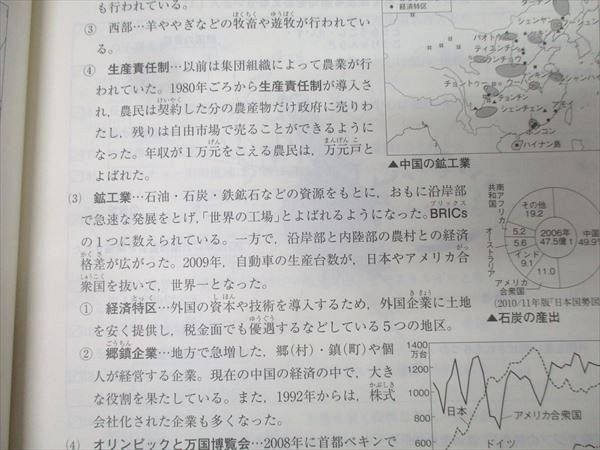 も行われている。
③ 西部…羊ややぎなどの牧畜や遊牧が行われてい
る。
④ 生産責任制…以前は集団組織によって農業が行
われていた。1980年ごろから生産責任制が導入さ
れ，農民は契約した分の農産物だけ政府に売りわ
たし，残りは自由市場で売ることができるように
なった。年収が1万元をこえる農民は，万元戸と
よばれた。
(3) 鉱工業…石油・石炭・鉄鉱石などの資源をもとに，おもに沿岸部
で急速な発展をとげ，「世界の工場」とよばれるようになった。BRICs
の1つに数えられている。一方で，沿岸部と内陸部の農村との経済
格差が広がった。2009年，自動車の生産台数が，日本やアメリカ合
衆国を抜いて，世界一となった。
① 経済特区…外国の資本や技術を導入するため，外国企業に土地
を安く提供し，税金面でも優遇するなどしている5つの地区。
② 郷鎮企業…地方で急増した，郷(村)・鎮(町)や個
人が経営する企業。現在の中国の経済の中で，大き
な役割を果たしている。また，1992年からは，株式
会社化された企業も多くなった。
(4) オリンピックと万国博覧会…2008年に首都ペキンで
経済特区
シェンヤン
パオトウ
ティエンチン
チョントゥー
ウーハン
シャンハイ
チョンチン
シェンチェン
アモイ
ホンコン
ハイナン島
▲中国の鉱工業
南アフリカ共和国
オーストラリア
その他
19.2
5.2
5.6
インド
9.1
11.0
アメリカ
合衆国
2006年
47.5億t
中国
49.9%
(2010/11年版「日本国勢図
▲石炭の産出
1400
万台
1200
1000
800
600
日本
アメリカ合衆国
ドイツ